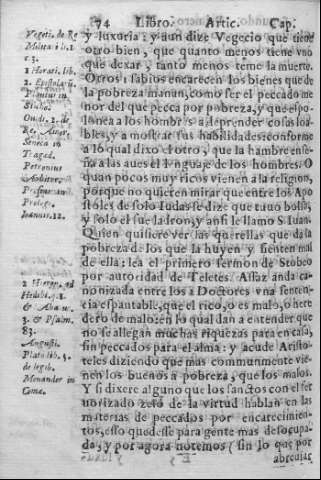 74 Libro. Artic. Cap.
y luxuria; y aun dize Vegecio que tiene
otro bien, que quanto menos tiene vno
que dexar, tanto menos teme la muerte.
Otros sabios encarecen los bienes que de
la pobreza manan, como ser el peccado me
nor del que pecca por pobreza, y que espo-
lonea a los hombres a deprender cosas loa-
bles, y a mostrar sus habilidades: conforme
a lo qual dixo el otro, que la hambre ense-
ña a las aues el lenguaje de los hombres. O
quan pocos muy ricos vienen a la religion,
porque no quieren mirar que entre los Apo
stoles de solo Iudas se dize que tuuo bolsa,
y solo el fue ladron, y ansi le llamo S. Iuan.
Quien quisiere ver las querellas que da la
pobreza de los que la huyen y sienten mal
de ella: lea el primero sermon de Stobeo
por autoridad de Teletes. Assaz anda ca-
nonizada entre los Doctores vna senten-
cia espantable, que el rico, o es malo, o here
dero de malo: en lo qual dan a entender que
no se allegan muchas riquezas para en casa,
sin peccados para el alma: y acude Aristo-
teles diziendo que mas communmente vie-
nen los buenos a pobreza, que los malos.
Y si dixere alguno que los sanctos con el fer
uorizado zelo de la virtud hablan en las
materias de peccados por encarecimien-
tos, esso quedesse para gente mas desocupa
da, y por agora notemos (sin lo que por
abreuiar
Vegeti. de Re
Milita i li. 2
c. 3.
1 Horati. lib.
2. Epistola
Stultis.
Ouidi. 2. de
Re.
Seneca in
Traged.
Petronius
Arbiter.
Proleg.
Ioannis. 12.
ad
Hedibi. q. 1
& Abacu.
3. & Psalm.
83.
Augusti.
Plato lib. 5.
de legib.
Menander in
Come.